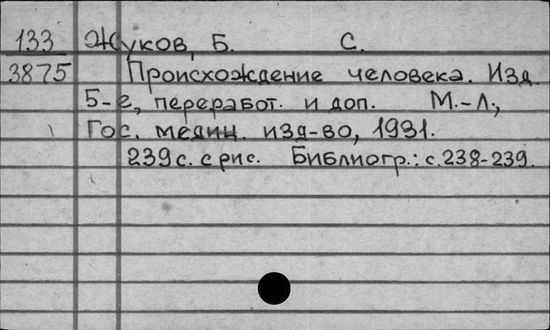 133 Жуков, Б. С.
3875 Происхождение человека. Изд.
5-е, переработ. и доп. М.-Л.,
Гос. медиц. изд-во, 1931.
239 с. с рис. Библиогр.: с. 238-239.